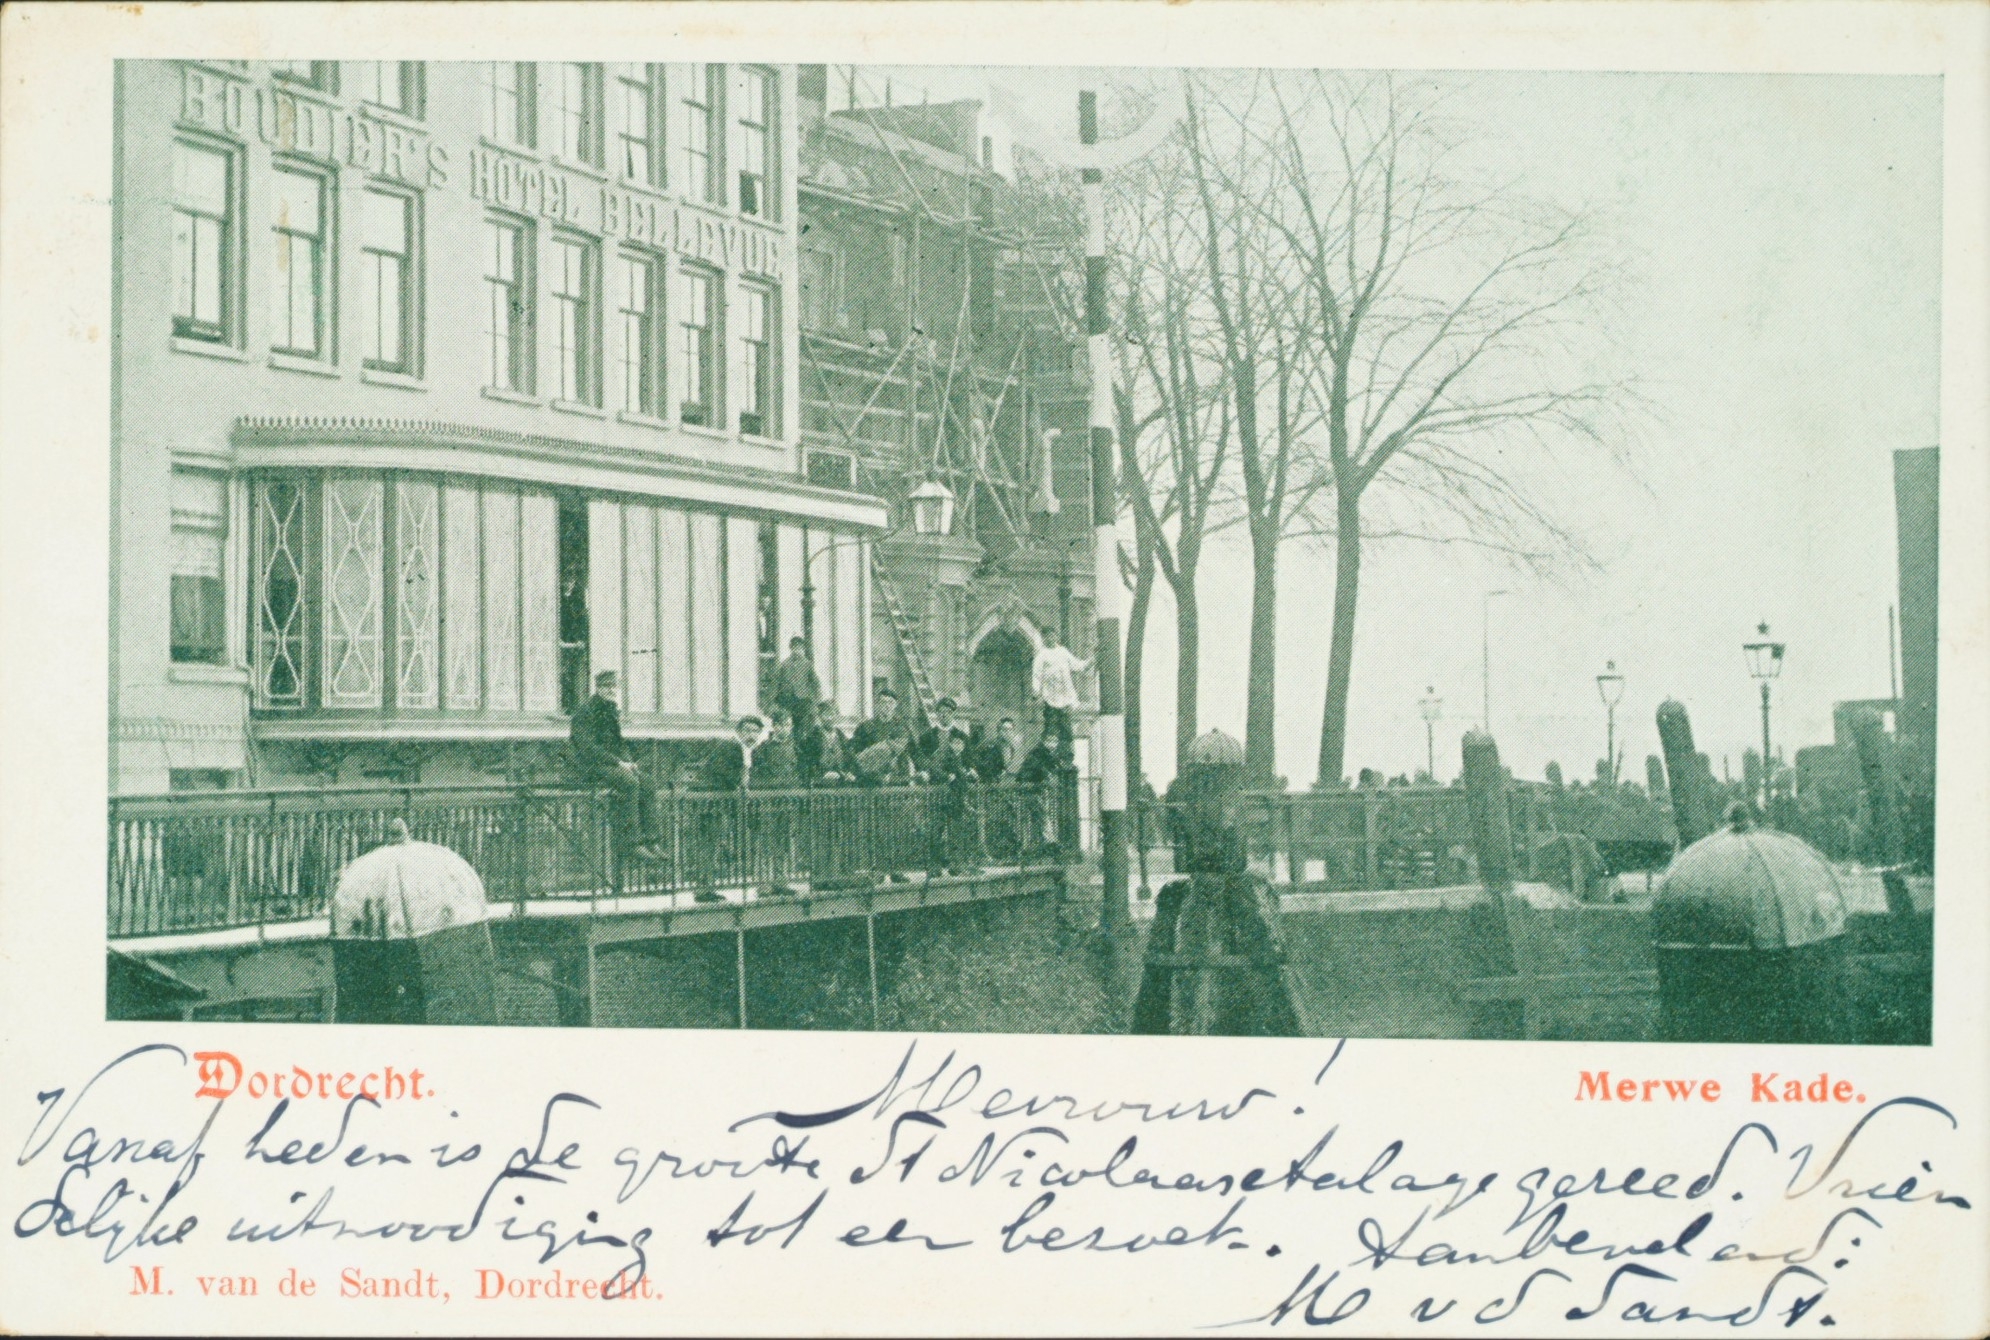 BOUDIER'S HOTEL BELLEVUE
Dordrecht.
Merwe Kade.
Mevrouw!
Vanaf heden is de groote St Nicolaasetalage gereed. Vrien
delijke uitnoodiging tot een bezoek. Aanbevelend:
M. van de Sandt, Dordrecht.
M v d Sandt.